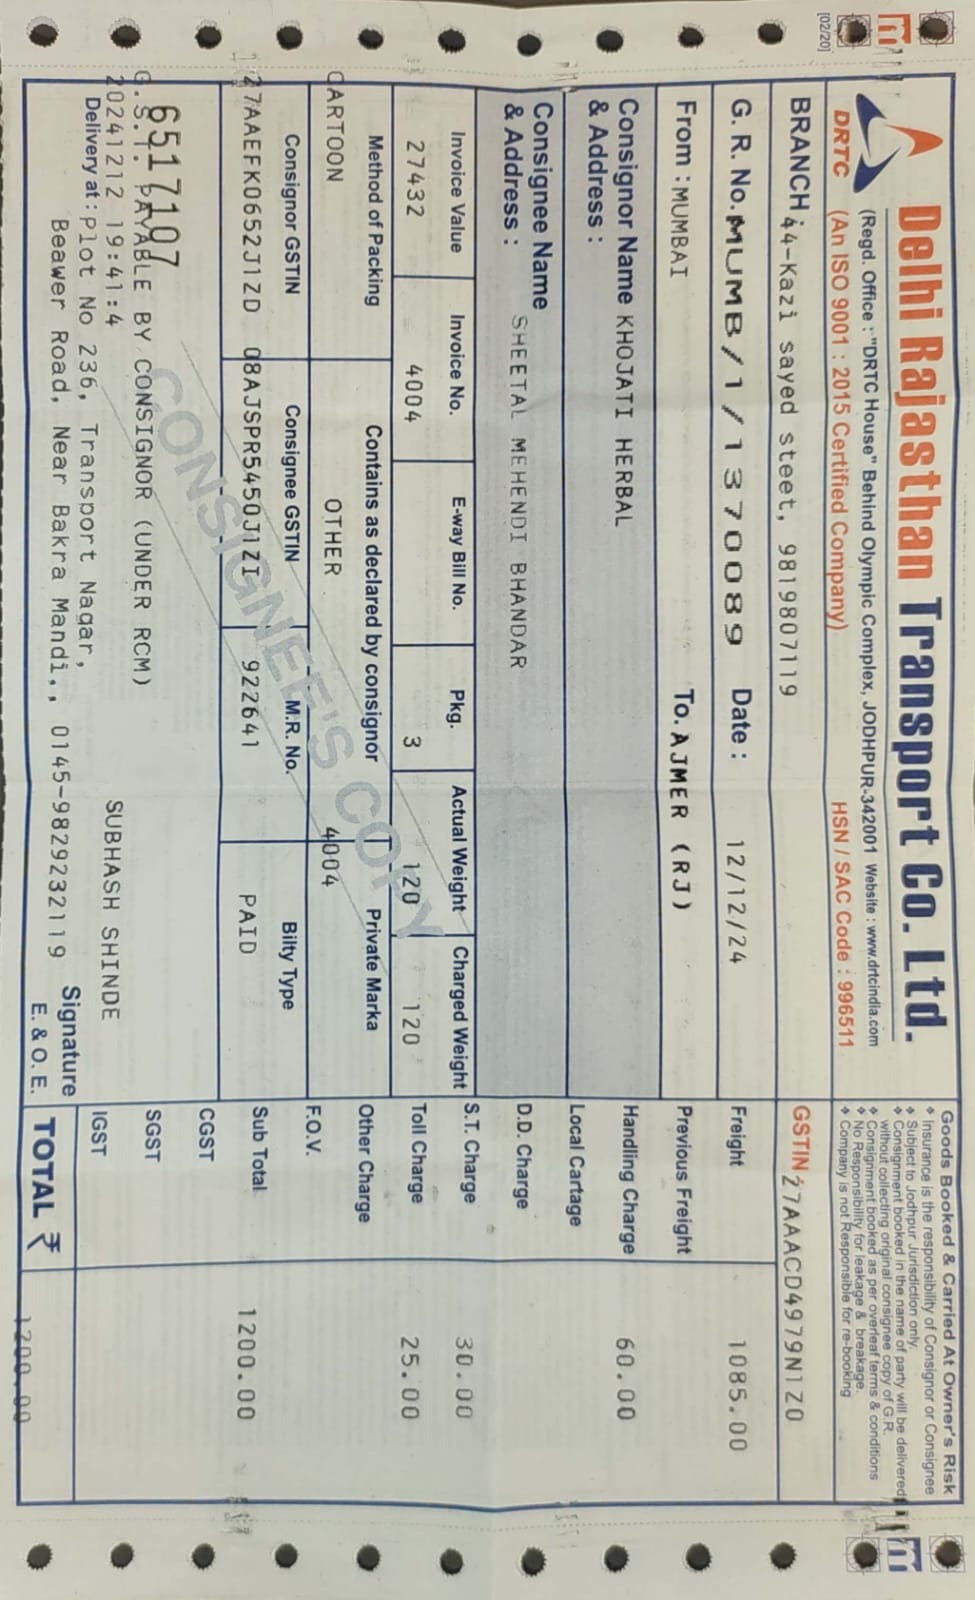 [02/20]
Delhi Rajasthan Transport Co. Ltd.
(Regd. Office : "DRTC House" Behind Olympic Complex, JODHPUR-342001 Website : www.drtcindia.com
DRTC (An ISO 9001 : 2015 Certified Company) HSN / SAC Code : 996511
Goods Booked & Carried At Owner's Risk
Insurance is the responsibility of Consignor or Consignee
Subject to Jodhpur Jurisdiction only.
Consignment booked in the name of party will be delivered
without collecting original consignee copy of G.R.
Consignment booked as per overleaf terms & conditions
No Responsibility for leakage & breakage.
Company is not Responsible for re-booking
BRANCH : 44-Kazi sayed steet, 9819807119
GSTIN 27AAACD4979N1Z0
G. R. No. MUMB/1/1370089 Date : 12/12/24
Freight 1085.00
From : MUMBAI To. AJMER (RJ)
Previous Freight
Consignor Name KHOJATI HERBAL
& Address :
Handling Charge 60.00
Local Cartage
Consignee Name
& Address : SHEETAL MEHENDI BHANDAR
D.D. Charge
Invoice Value Invoice No. E-way Bill No. Pkg. Actual Weight Charged Weight
S.T. Charge 30.00
27432 4004 3 120 120
Toll Charge 25.00
Method of Packing Contains as declared by consignor Private Marka
Other Charge
CARTOON OTHER 4004
F.O.V.
Consignor GSTIN Consignee GSTIN M.R. No. Bilty Type
27AAEFK0652J1ZD 08AJSPR5450J1ZI 922641 PAID
Sub Total 1200.00
CONSIGNEE'S COPY
CGST
6517107
G.S.T. PAYABLE BY CONSIGNOR (UNDER RCM)
SGST
20241212 19:41:4 SUBHASH SHINDE
IGST
Delivery at : Plot No 236, Transport Nagar,
Beawer Road, Near Bakra Mandi,, 0145-9829232119
Signature
E. & O. E.
TOTAL ₹ 1200.00